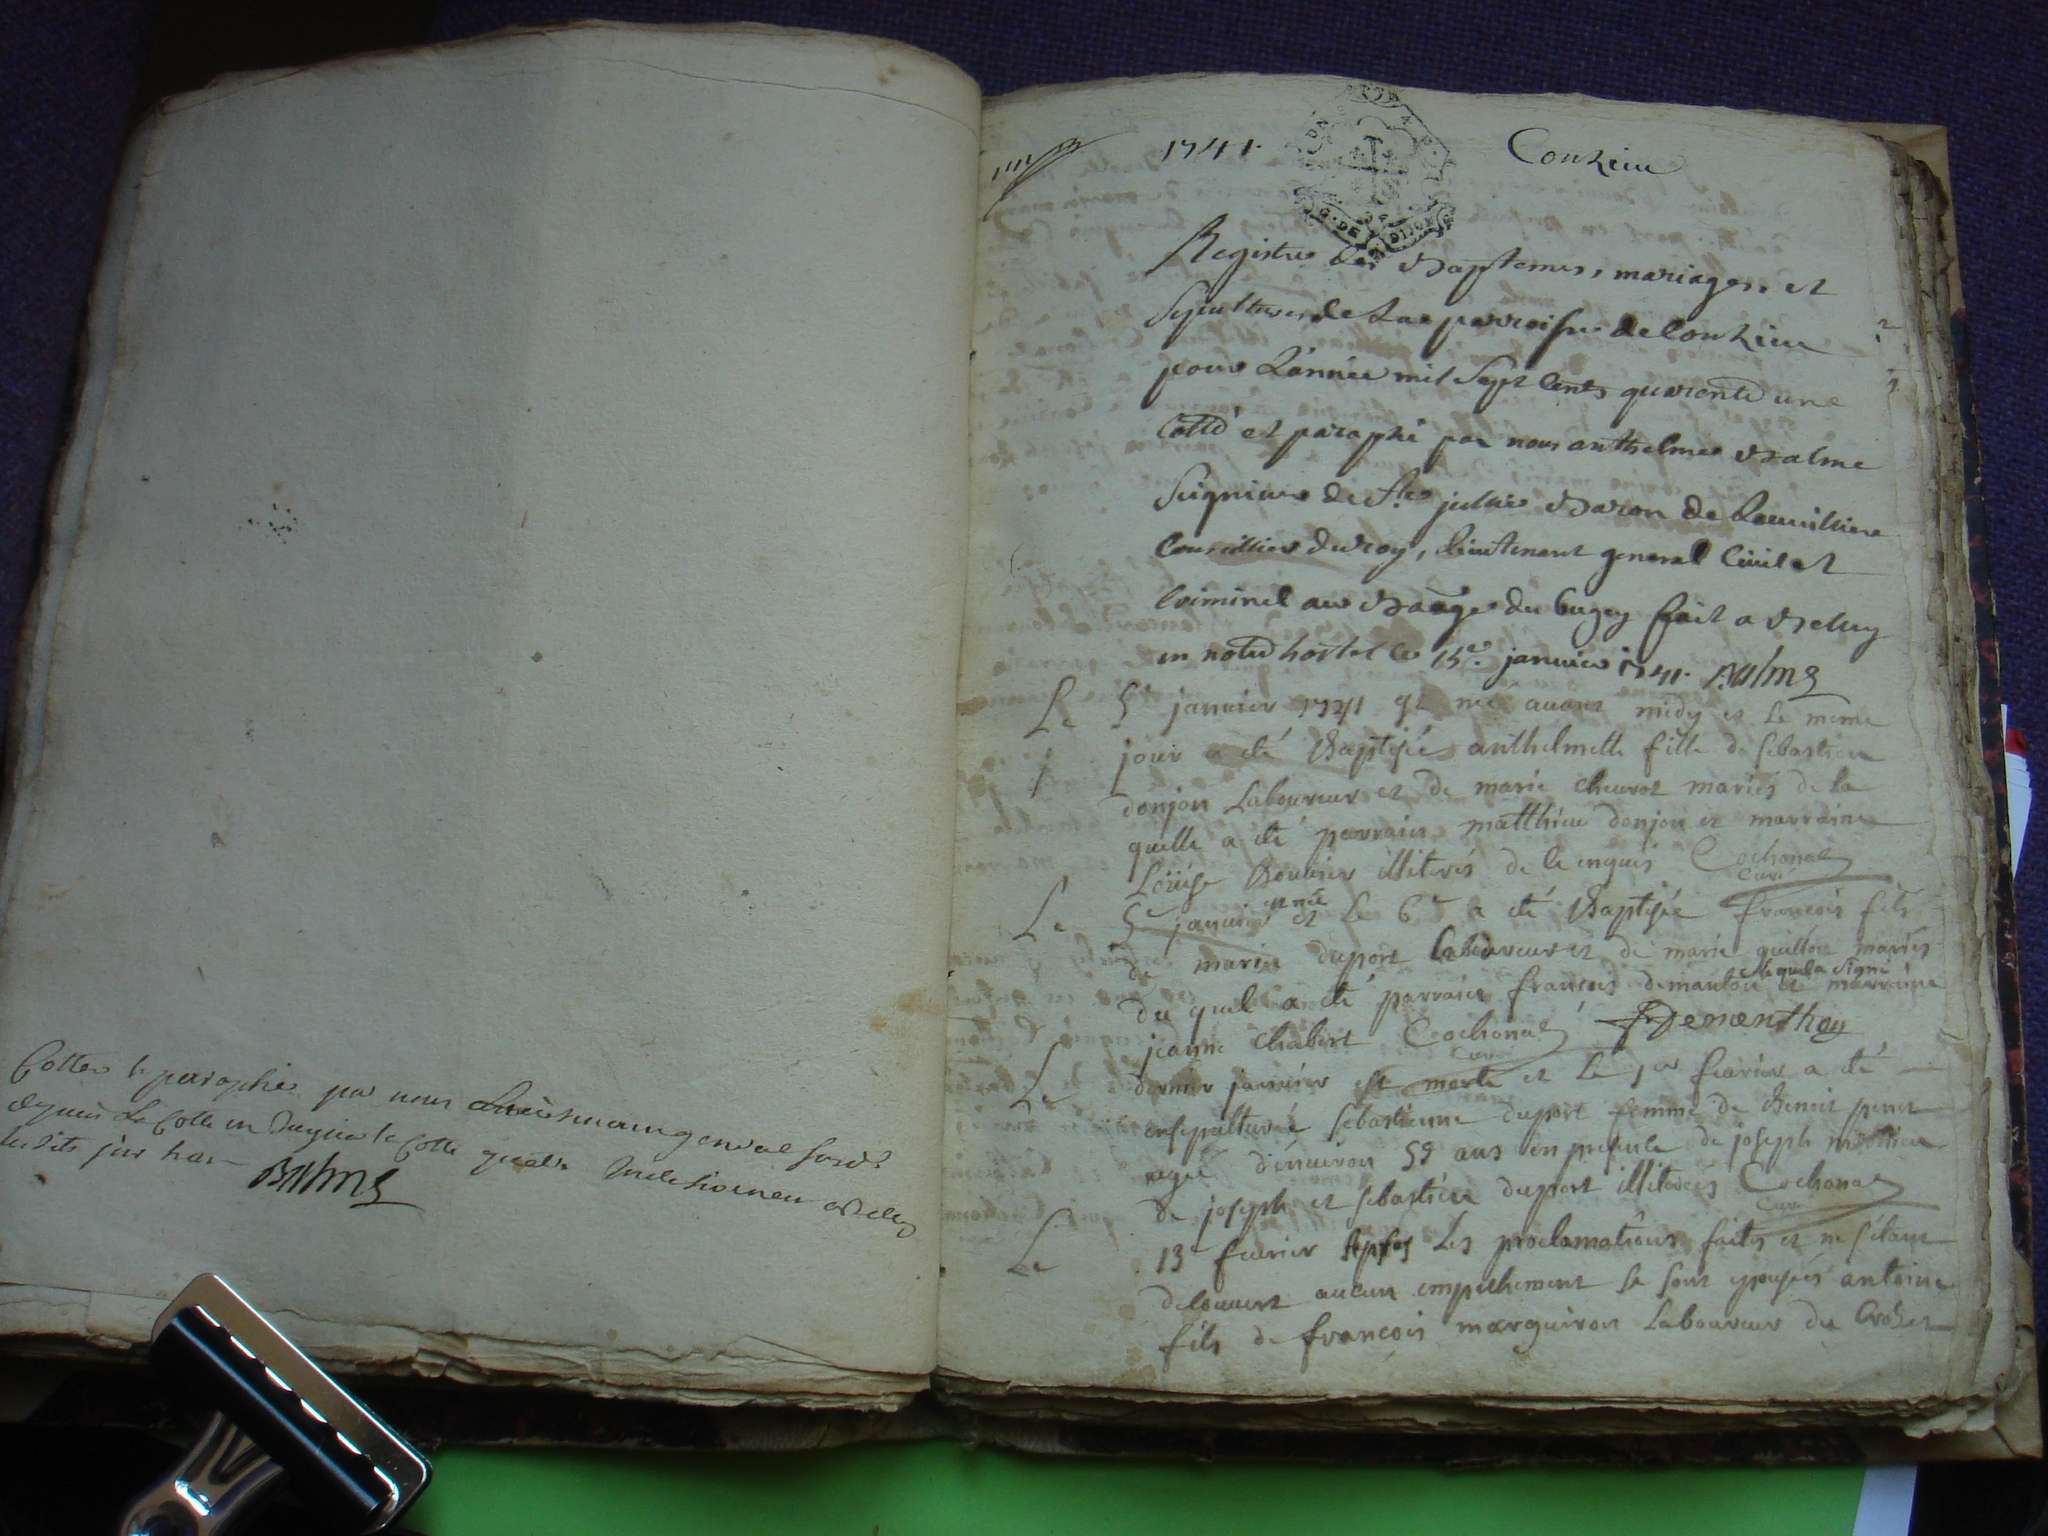 Cottes et paraphes par nous
depuis la Cotte une jusqua la Cotte quatre
lesdits jour
Balme
1741. Conzieu
G. DE DIJON
Registre des Baptemes, mariages et
Sepultures de La parroisse de Conzieu
pour L'année mil Sept Cents quarente une
Cotté et paraphé par nous anthelme Balme
Seigneur de Ste jullie Baron de
Conseillier du roy, lieutenant general Civil et
Criminel au Baage du bugey fait a Belley
en notre hostel le 15e janvier 1741. Balme
Le 5e janvier 1741 est née avant midy et le même
jour a été Baptisée anthelmette fille de sebastien
donjon Laboureur et de marie chevrot mariés de la
quelle a été parrain matthieu donjon et marraine
Loüise Bouvier illiterés de ce enquis Cochonat
Curé
Le 5e janvier est né et Le 6e a été Baptisée françois fils
de marin duport laboureur et de marie guillot mariés
du quel a été parrain françois demantoi lequel a signé et marraine
jeanne Chabert Cochonat Dementhoy
Curé
Le dernier janvier est morte et Le 1er fevrier a été
ensepulturée sebastienne duport femme de Benoit
agée d'environ 59 ans en presence de joseph
de joseph et sebastien duport illiterés Cochonat
Curé
Le 13e fevrier Apres Les proclamations faites et ne s'étant
decouvert aucun empechement se sont epousés antoine
fils de françois marguiron Laboureur du Crozet